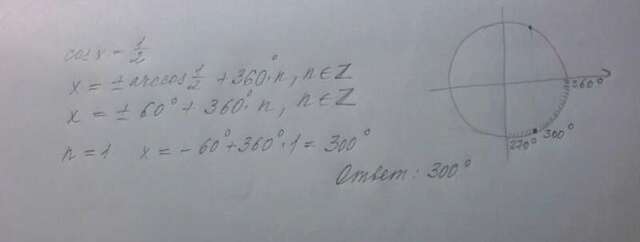 cos x = 1/2
x = ± arccos 1/2 + 360° · n, n ∈ Z
x = ± 60° + 360° · n, n ∈ Z
n = 1 x = - 60° + 360° · 1 = 300°
Ответ: 300°
360°
270° 300°